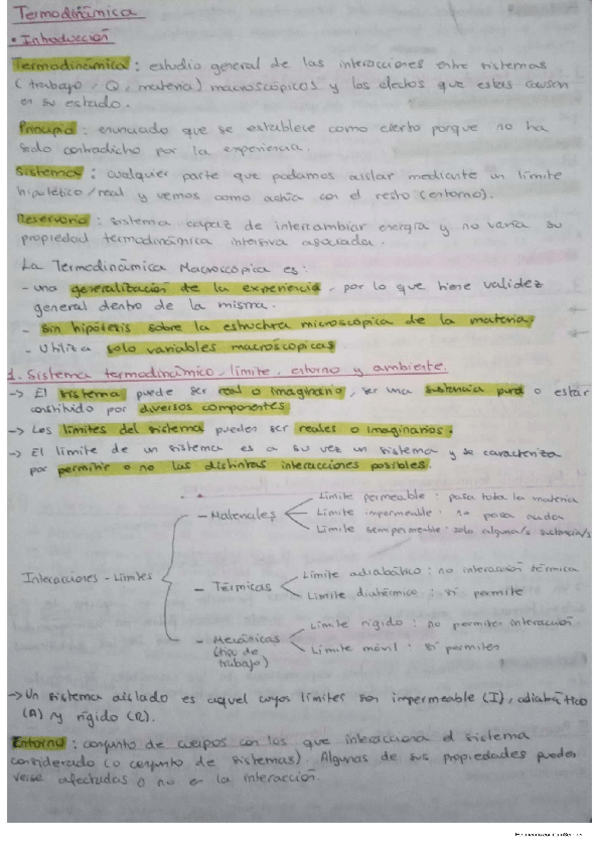 Termodinámica
• Introducción
Termodinámica : estudio general de las interacciones entre sistemas
(trabajo, Q, materia) macroscópicos y los efectos que estas causan
en su estado.
Principio : enunciado que se establece como cierto porque no ha
sido contradicho por la experiencia.
Sistema : cualquier parte que podamos aislar mediante un límite
hipotético/real y vemos como actúa con el resto (entorno).
Reservorio : sistema capaz de intercambiar energía y no varía su
propiedad termodinámica intensiva asociada.
La Termodinámica Macroscópica es:
- una generalización de la experiencia, por lo que tiene validez
general dentro de la misma.
- Sin hipótesis sobre la estructura microscópica de la materia.
- Utiliza solo variables macroscópicas.
1. Sistema termodinámico, límite, entorno y ambiente.
-> El sistema puede ser real o imaginario, ser una sustancia pura o estar
constituido por diversos componentes
-> Los límites del sistema pueden ser reales o imaginarios.
-> El límite de un sistema es a su vez un sistema y se caracteriza
por permitir o no las distintas interacciones posibles.
Interacciones - Límites
- Materiales
Límite permeable : pasa toda la materia
Límite impermeable : no pasa nada
Límite semipermeable : solo alguna/s sustancia/s
- Térmicas
Límite adiabático : no interacción térmica
Límite diatérmico : sí permite
- Mecánicas
(tipo de
trabajo)
Límite rígido : no permiten interacción
Límite móvil : sí permiten
-> Un sistema aislado es aquel cuyos límites son impermeable (I), adiabático
(A) y rígido (R).
Entorno : conjunto de cuerpos con los que interacciona el sistema
considerado (o conjunto de sistemas). Algunas de sus propiedades pueden
verse afectadas o no en la interacción.